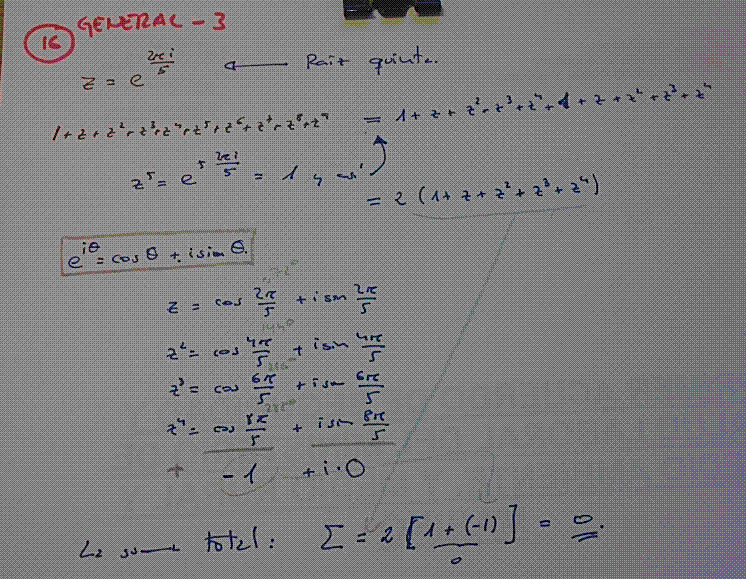 16 GENERAL - 3
z = e^(2πi/5) ← Raiz quinta.
1+z+z²+z³+z⁴+z⁵+z⁶+z⁷+z⁸+z⁹ = 1+z+z²+z³+z⁴+1+z+z²+z³+z⁴
z⁵ = e^(5 2πi/5) = 1 y así
= 2 (1+z+z²+z³+z⁴)
e^(iθ) = cos θ + i sin θ.
72°
z = cos 2π/5 + i sin 2π/5
144°
z² = cos 4π/5 + i sin 4π/5
216°
z³ = cos 6π/5 + i sin 6π/5
288°
z⁴ = cos 8π/5 + i sin 8π/5
+ -1 + i·0
La suma total: Σ = 2 [1 + (-1)] = 0.
0